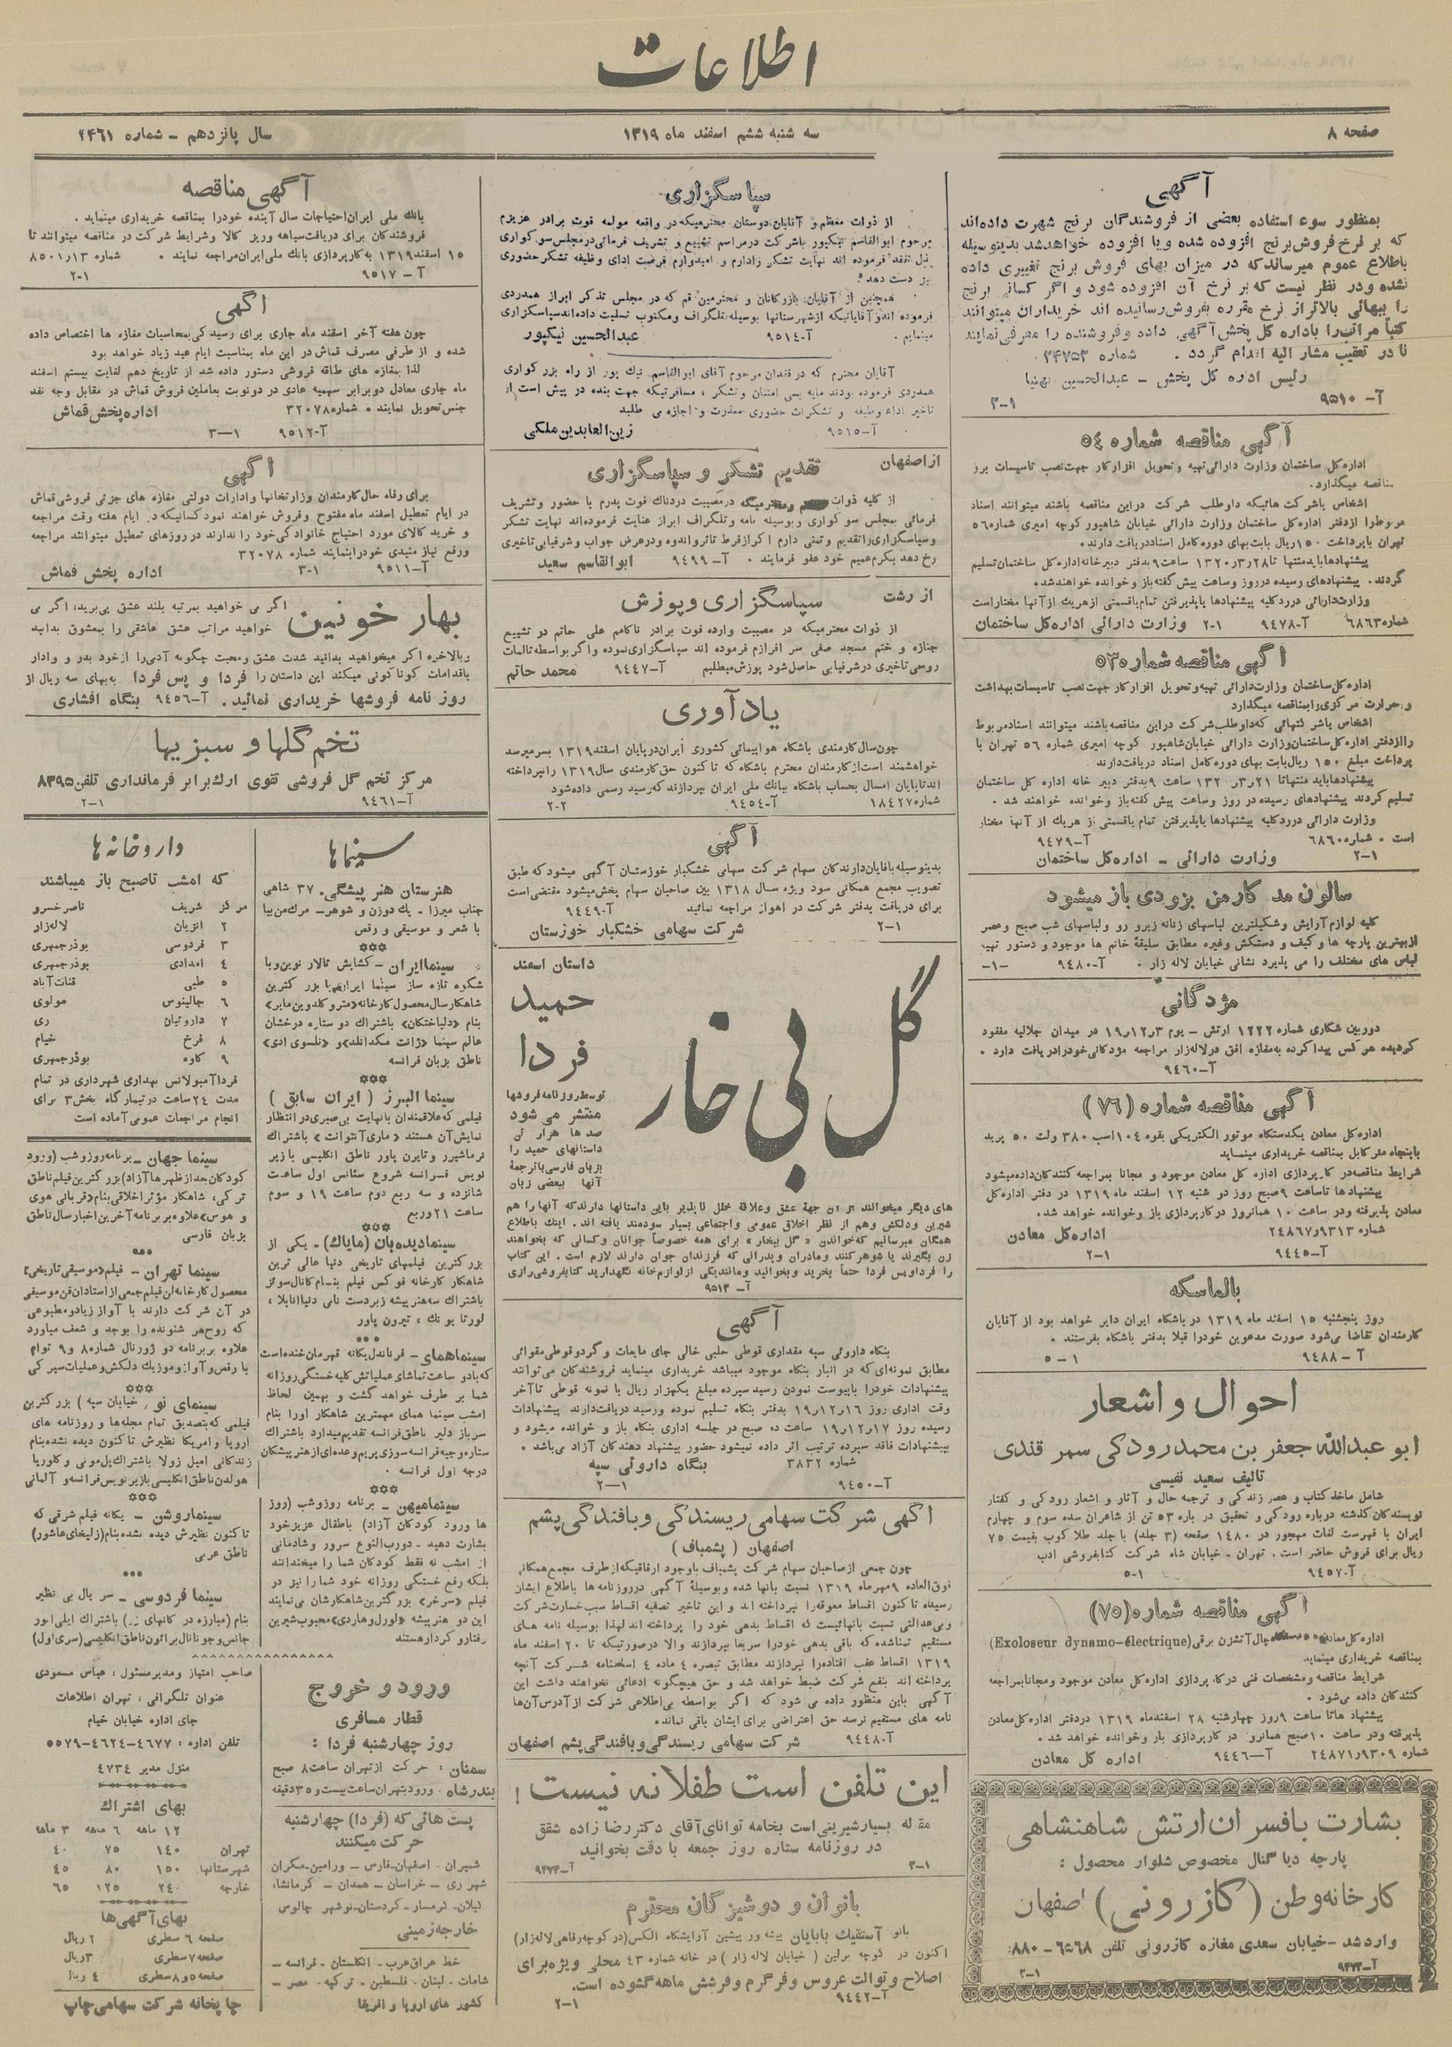 اطلاعات
صفحه ۸
سه شنبه ششم اسفند ماه ۱۳۱۹
سال پانزدهم – شماره ۴۴۶۱
آگهی
بمنظور سوء استفاده بعضی از فروشندگان برنج شهرت داده‌اند
که بر نرخ فروش برنج افزوده شده ویا افزوده خواهد شد بدینوسیله
باطلاع عموم میرساند که در میزان بهای فروش برنج تغییری داده
نشده ودر نظر نیست که بر نرخ آن افزوده شود و اگر کسانی برنج
را ببهائی بالاتر از نرخ مقرره بفروش رسانیده اند خریداران میتوانند
کتباً مراتب را باداره کل پخش آگهی داده و فروشنده را معرفی نمایند
تا در تعقیب مشار الیه اقدام گردد . شماره ۳۴۷۵۳
رئیس اداره کل پخش – عبدالحسین بهنیا
آ– ۹۵۱۰ ۱–۳
آگهی مناقصه شماره ۵۴
اداره کل ساختمان وزارت دارائی تهیه و تحویل افزار کار جهت نصب تاسیسات برز
مناقصه میگذارد.
اشخاص یا شرکت هائیکه داوطلب شرکت در این مناقصه باشند میتوانند اسناد
مربوط را از دفتر اداره کل ساختمان وزارت دارائی خیابان شاهپور کوچه امیری شماره ۵۶
تهران با پرداخت ۱۵۰ ریال بابت بهای دوره کامل اسناد دریافت دارند.
پیشنهادها باید منتها تا ۲۸ر۳ر۱۳۲۰ ساعت ۹ بدفتر دبیرخانه اداره کل ساختمان تسلیم
گردند . پیشنهادهای رسیده در روز وساعت پیش گفته باز و خوانده خواهد شد.
وزارت دارائی در رد کلیه پیشنهادها یا پذیرفتن تمام یا قسمتی از هر یک از آنها مختار است
شماره ۶۸۶۳ آ–۹۴۷۸ ۱–۲ وزارت دارائی اداره کل ساختمان
آگهی مناقصه شماره ۵۳
اداره کل ساختمان وزارت دارائی تهیه و تحویل افزار کار جهت نصب تاسیسات بهداشت
و حرارت مرکزی را بمناقصه میگذارد
اشخاص یا شرکتهائی که داوطلب شرکت در این مناقصه باشند میتوانند اسناد مربوط
را از دفتر اداره کل ساختمان وزارت دارائی خیابان شاهپور کوچه امیری شماره ۵۶ تهران با
پرداخت مبلغ ۱۵۰ ریال بابت بهای دوره کامل اسناد دریافت دارند.
پیشنهادها باید منتها تا ۲۱ر۳ر۱۳۲۰ ساعت ۹ بدفتر دبیر خانه اداره کل ساختمان
تسلیم گردند پیشنهادهای رسیده در روز و ساعت پیش گفته باز و خوانده خواهند شد .
وزارت دارائی در رد کلیه پیشنهادها یا پذیرفتن تمام یا قسمتی از هر یک از آنها مختار
است . شماره ۶۸۶۰ آ–۹۴۷۹
۱–۲ وزارت دارائی – اداره کل ساختمان
سالون مد کارمن بزودی باز میشود
کلیه لوازم آرایش و شکیلترین لباسهای زنانه زیرو رو ولباسهای شب صبح و عصر
از بهترین پارچه ها و کیف و دستکش وغیره مطابق سلیقهٔ خانم ها موجود و دستور تهیه
لباس های مختلف را می پذیرد نشانی خیابان لاله زار . آ–۹۴۸۰ –۱–
مژدگانی
دوربین شکاری شماره ۱۲۲۲ ارتش – یوم ۳ر۱۲ر۱۹ در میدان جلالیه مفقود
گردیده هر کس پیدا کرده به مغازه افق در لاله‌زار مراجعه مژدگانی خود را دریافت دارد .
آ–۹۴۶۰
آگهی مناقصه شماره (۷۶)
اداره کل معادن یکدستگاه موتور الکتریکی بقوه ۱۰۴ اسب ۳۸۰ ولت ۵۰ پرید
با پنجاه متر کابل بمناقصه خریداری مینماید
شرایط مناقصه در کارپردازی اداره کل معادن موجود و مجانا بمراجعه کنندگان داده میشود
پیشنهادها تا ساعت ۹ صبح روز دو شنبه ۱۲ اسفند ماه ۱۳۱۹ در دفتر اداره کل
معادن پذیرفته ودر ساعت ۱۰ همانروز در کارپردازی باز وخوانده خواهد شد.
شماره ۲۴۸۶۷ر۹۳۱۳ اداره کل معادن
آ–۹۴۴۵ ۱–۲
بالماسکه
روز پنجشنبه ۱۵ اسفند ماه ۱۳۱۹ در باشگاه ایران دایر خواهد بود از آقایان
کارمندان تقاضا میشود صورت مدعوین خودرا قبلا بدفتر باشگاه بفرستند .
آ– ۹۴۸۸ ۱–۵
احوال و اشعار
ابو عبدالله جعفر بن محمد رودکی سمرقندی
تالیف سعید نفیسی
شامل ماخذ کتاب و عصر زندگی و ترجمه حال و آثار و اشعار رودکی و گفتار
نویسندگان گذشته درباره رودکی و تحقیق در باره ۵۳ تن از شاعران سده سوم و چهارم
ایران با فهرست لغات مهجور در ۱۴۸۰ صفحه (۳ جلد) با جلد طلا کوب بقیمت ۷۵
ریال برای فروش حاضر است . تهران – خیابان شاه شرکت کتابفروشی ادب
آ–۹۴۵۷ ۱–۵
آگهی مناقصه شماره (۷۵)
اداره کل معادن ۵۰ دستگاه چال آتشزن برقی (Exoloseur dynamo-électrique)
بمناقصه خریداری مینماید
شرایط مناقصه ومشخصات فنی در کار پردازی اداره کل معادن موجود ومجانا بمراجعه
کنندگان داده می‌شود .
پیشنهاد ها تا ساعت ۹ روز چهارشنبه ۲۸ اسفند ماه ۱۳۱۹ در دفتر اداره کل معادن
پذیرفته ودر ساعت ۱۰ صبح همانروز در کارپردازی باز وخوانده خواهد شد .
شماره ۲۴۸۷۱ر۹۳۰۹ آ–۹۴۴۶ اداره کل معادن
بشارت بافسران ارتش شاهنشاهی
پارچه دیا گنال مخصوص شلوار محصول :
کارخانه وطن (کازرونی) اصفهان
وارد شد –خیابان سعدی مغازه کازرونی تلفن ۶۵۶۸–۸۸۰
آ–۹۴۷۳ ۱–۳
سپاسگزاری
از ذوات معظم و آقایان دوستان محترمیکه در واقعه مولمه فوت برادر عزیزم
مرحوم ابوالقاسم نیکپور با شرکت در مراسم تشییع و تشریف فرمائی در مجلس سوگواری
بذل تفقد فرموده اند نهایت تشکر را دارم و امیدوارم فرصت ادای وظیفه تشکر حضوری
نیز دست دهد؟
همچنین از آقایان بازرگانان و محترمین قم که در مجلس تذکر ابراز همدردی
فرموده اند و آقایانیکه از شهرستانها بوسیله تلگراف ومکتوب تسلیت داده اند سپاسگزاری
مینمایم . آ–۹۵۱۴ عبدالحسین نیکپور
آقایان محترم که در فقدان مرحوم آقای ابوالقاسم نیک پور از راه بزرگواری
همدردی فرموده بودند مایه بسی امتنان و تشکر ، مسافرتیکه جهت بنده در پیش است از
تاخیر اداء وظیفه و تشکرات حضوری معذرت و اجازه می طلبد
آ–۹۵۱۵ زین العابدین ملکی
از اصفهان تقدیم تشکر و سپاسگزاری
از کلیه ذوات محترمیکه در مصیبت دردناك فوت پدرم با حضور و تشریف
فرمائی بمجلس سوگواری و بوسیله نامه وتلگراف ابراز عنایت فرموده‌اند نهایت تشکر
وسپاسگزاری را تقدیم و تمنی دارم اگر از فرط تاثر و اندوه و در عرض جواب وشرفیابی تاخیری
رخ دهد بکرم عمیم خود عفو فرمایند . آ–۹۴۹۹ ابوالقاسم سعید
از رشت سپاسگزاری و پوزش
از ذوات محترمیکه در مصیبت وارده فوت برادر ناکامم علی حاتم در تشییع
جنازه و ختم مسجد صفی سر افرازم فرموده اند سپاسگزاری نموده و اگر بواسطه تالمات
روحی تاخیری در شرفیابی حاصل شود پوزش میطلبم آ–۹۴۴۷ محمد حاتم
یادآوری
چون سال کارمندی باشگاه هواپیمائی کشوری ایران در پایان اسفند ۱۳۱۹ بسر میرسد
خواهشمند است از کارمندان محترم باشگاه که تا کنون حق کارمندی سال ۱۳۱۹ را نپرداخته
اند تا پایان امسال بحساب باشگاه ببانک ملی ایران بپردازند که رسید رسمی داده شود
شماره ۱۸۴۲۷ آ–۹۴۵۴ ۲–۲
آگهی
بدینوسیله بآقایان دارندگان سهام شرکت سهامی خشکبار خوزستان آگهی میشود که طبق
تصویب مجمع همگانی سود ویژه سال ۱۳۱۸ بین صاحبان سهام پخش میشود مقتضی است
برای دریافت بدفتر شرکت در اهواز مراجعه نمائید آ–۹۴۴۹
۱–۲ شرکت سهامی خشکبار خوزستان
گل بی خار
داستان اسفند
حمید
فردا
توسط روزنامه فروشها
منتشر می شود
صدها هزار تن
داستانهای حمید را
بزبان فارسی یا ترجمهٔ
آنها ببعضی زبان
های دیگر میخوانند و از این جهة عشق وعلاقهٔ خلل ناپذیر باین داستانها دارند که آنها را هم
شیرین ودلکش وهم از نظر اخلاق عمومی واجتماعی بسیار سودمند یافته اند . اینك باطلاع
همگان میرسانیم که خواندن «گل بیخار» برای همه خصوصاً جوانان وکسانی که بخواهند
زن بگیرند یا شوهر کنند ومادران وپدرانی که فرزندان جوان دارند لازم است . این کتاب
را فردا وپس فردا حتماً بخرید وبخوانید ومانند یکی از لوازم خانه نگهدارید کتابفروشی رازی
آ– ۹۵۱۳
آگهی
بنگاه داروئی سپه مقداری قوطی حلبی خالی جای مایعات و گرد و قوطی مقوائی
مطابق نمونه‌ای که در انبار بنگاه موجود میباشد خریداری مینماید فروشندگان می‌توانند
پیشنهادات خودرا با پیوست نمودن رسید سپرده مبلغ یکهزار ریال با نمونه قوطی تا آخر
وقت اداری روز ۱۶ر۱۲ر۱۹ بدفتر بنگاه تسلیم نموده ورسید دریافت دارند پیشنهادات
رسیده روز ۱۷ر۱۲ر۱۹ ساعت ده صبح در جلسه اداری بنگاه باز و خوانده میشود و
بپیشنهادات فاقد سپرده ترتیب اثر داده نمیشود حضور پیشنهاد دهندگان آزاد می‌باشد .
شماره ۳۸۳۲ بنگاه داروئی سپه
آ–۹۴۵۰ ۱–۲
آگهی شرکت سهامی ریسندگی وبافندگی پشم
اصفهان (پشمباف)
چون جمعی از صاحبان سهام شرکت پشمباف باوجود ارفاقیکه از طرف مجمع همگانی
فوق‌العاده ۹ مهرماه ۱۳۱۹ نسبت بآنها شده وبوسیلهٔ آگهی در روزنامه ها باطلاع ایشان
رسیده تا کنون اقساط معوقه را نپرداخته اند و این تاخیر تصفیه اقساط سبب خسارت شرکت
و بی‌عدالتی نسبت بآنهائیست که اقساط بدهی خود را پرداخته اند لهذا بوسیله نامه های
مستقیم تمنا شده که باقی بدهی خودرا سریعا بپردازند والا در صورتیکه تا ۲۰ اسفند ماه
۱۳۱۹ اقساط عقب افتاده را نپردازند مطابق تبصره ۴ ماده ۴ اساسنامه شرکت آنچه
پرداخته اند بنفع شرکت ضبط خواهد شد و حق هیچگونه ادعائی نخواهند داشت این
آگهی باین منظور داده می شود که اگر بواسطه بی‌اطلاعی شرکت از آدرس آن‌ها
نامه های مستقیم نرسد حق اعتراضی برای ایشان باقی نماند.
آ–۹۴۴۸ شرکت سهامی ریسندگی وبافندگی پشم اصفهان
این تلفن است طفلانه نیست !
مقاله بسیار شیرینی است بخامه توانای آقای دکتر رضا زاده شفق
در روزنامه ستاره روز جمعه با دقت بخوانید
۱–۳ آ–۹۴۷۴
بانوان و دوشیزگان محترم
بانو آستفیك بابایان پیشه ور پیشین آرایشگاه الکس (در کوچه رفاهی لاله‌زار)
اکنون در کوچه برلین (خیابان لاله زار) در خانه شماره ۴۳ محلی ویژه برای
اصلاح و توالت عروس و فرگرم و فرشش ماهه گشوده است.
آ–۹۴۴۲ ۱–۲
آگهی مناقصه
بانك ملی ایران احتیاجات سال آینده خودرا بمناقصه خریداری مینماید .
فروشندگان برای دریافت سیاهه وریز کالا وشرایط شرکت در مناقصه میتوانند تا
۱۵ اسفند ۱۳۱۹ به کارپردازی بانك ملی ایران مراجعه نمایند . شماره ۱۳ر۸۵۰۱
آ– ۹۵۱۷ ۱–۲
آگهی
چون هفته آخر اسفند ماه جاری برای رسیدگی بمحاسبات مغازه ها اختصاص داده
شده و از طرفی مصرف قماش در این ماه بمناسبت ایام عید زیاد خواهد بود
لذا بمغازه های طاقه فروشی دستور داده شد از تاریخ دهم لغایت بیستم اسفند
ماه جاری معادل دو برابر سهمیه عادی در دو نوبت بعاملین فروش قماش در مقابل وجه نقد
جنس تحویل نمایند . شماره ۳۲۰۷۸ اداره پخش قماش
آ–۹۵۱۲ ۱–۳
آگهی
برای رفاه حال کارمندان وزارتخانه‌ها وادارات دولتی مغازه های جزئی فروشی قماش
در ایام تعطیل اسفند ماه مفتوح وفروش خواهند نمود کسانیکه در ایام هفته وقت مراجعه
و خرید کالای مورد احتیاج خانوادگی خود را ندارند در روزهای تعطیل میتوانند مراجعه
ورفع نیازمندی خود را بنمایند شماره ۳۲۰۷۸
آ–۹۵۱۱ ۱–۳ اداره پخش قماش
بهار خونین
اگر می خواهید بمرتبه بلند عشق پی‌برید، اگر می
خواهید مراتب عشق عاشقی را بمعشوق بدانید
و بالاخره اگر میخواهید بدانید شدت عشق ومحبت چگونه آدمی را از خود بدر و وادار
باقدامات گوناگونی میکند این داستان را فردا و پس فردا به‌بهای سه ریال از
روز نامه فروشها خریداری نمائید. آ–۹۴۵۶ بنگاه افشاری
تخم گلها و سبزیها
مرکز تخم گل فروشی تقوی ارك برابر فرمانداری تلفن ۸۳۹۵
آ–۹۴۶۱ ۱–۲
سینماها
هنرستان هنرپیشگی. ۳۷ شاهی
جناب میرزا – یك دوزن و شوهر– مرك من بیا
با شعر و موسیقی و رقص
***
سینما ایران – گشایش تالار نوین و با
شکوه تازه ساز سینما ایران با بزرگترین
شاهکار سال محصول کارخانه «مترو گلدوین مایر»
بنام «دلباختگان» باشتراك دو ستاره درخشان
عالم سینما «ژانت مکدانلد» و «نلسون ادی»
ناطق بزبان فرانسه
***
سینما البرز (ایران سابق)
فیلمی که علاقمندان با نهایت بی صبری در انتظار
نمایش آن هستند «ماری آنتوانت» باشتراك
نرماشیرر و تایرن پاور ناطق انگلیسی با زیر
نویس فرانسه شروع سئانس اول ساعت
شانزده و سه ربع دوم ساعت ۱۹ و سوم
ساعت ۲۱ وربع
***
سینما دیده‌بان (مایاك). یکی از
بزرگترین فیلمهای تاریخی دنیا عالی ترین
شاهکار کارخانه فوکس فیلم بنام کانال سوئز
باشتراك سه هنرپیشه زبردست نامی دنیا انابلا،
لورتا یونك ، تیرون پاور
***
سینما همای – فرناندل یگانه قهرمان خنده است
که با دو ساعت تماشای عملیاتش کلیه خستگی روزانه
شما بر طرف خواهد گشت و بهمین لحاظ
امشب سینما همای مهمترین شاهکار اورا بنام
سرباز دلیر ناطق فرانسه تقدیم میدارد باشتراك
ستاره وجیه فرانسه سوزی پریم وعده‌ای از هنرپیشگان
درجه اول فرانسه .
***
سینما میهن – برنامه روز وشب (روز
ها ورود کودکان آزاد) باطفال عزیز خود
بشارت دهید – دورب‌النوع سرور و شادمانی
از امشب نه فقط کودکان شما را میخندانند
بلکه رفع خستگی روزانه خود شما را نیز در
فیلم «سرخر» بزرگترین شاهکارشان می‌نمایند
این دو هنرپیشه «لورل وهاردی» محبوب شیرین
رفتار و کردار هستند
ورود و خروج
قطار مسافری
روز چهارشنبه فردا :
سمنان : حرکت از تهران ساعت ۸ صبح
بندرشاه . ورود بتهران ساعت بیست و ۳۵ دقیقه
پست هائی که (فردا) چهارشنبه
حرکت میکنند
شمیران . اصفهان –فارس – ورامین–مکران
شهر ری – خراسان – همدان – کرمانشاه.
گیلان– گرمسار– کردستان– نوشهر چالوس
خارجه زمینی
خط عراق عرب . انگلستان – فرانسه –
شامات . لبنان . فلسطین . ترکیه . مصر –
کشور های اروپا و افریقا
داروخانه ها
که امشب تا صبح باز میباشند
مرکز شریف ناصر خسرو
۲ انزیان لاله‌زار
۳ فردوسی بوذرجمهری
۴ امدادی بوذرجمهری
۵ طبی قنات آباد
۶ جالینوس مولوی
۷ داروئیان ری
۸ فرخ خیام
۹ کاوه بوذرجمهری
فردا آمبولانس بهداری شهرداری در تمام
مدت ۲۴ ساعت در تیمارگاه بخش ۳ برای
انجام مراجعات عمومی آماده است
سینما جهان – برنامه روز و شب (ورود
کودکان بعد از ظهرها آزاد) بزرگترین فیلم ناطق
ترکی، شاهکار مؤثر اخلاقی بنام «قربانی هوی
و هوس» علاوه بر برنامه آخرین اخبار سال ناطق
بزبان فارسی
***
سینما تهران – فیلم «موسیقی تاریخی»
محصول کارخانه لن فیلم جمعی از استادان فن موسیقی
در آن شرکت دارند با آواز زیاد و مطبوعی
که روح هر شنونده را بوجد و شعف میاورد
علاوه بر برنامه دو ژورنال شماره ۸ و ۹ توام
با رقص و آواز وموزیك دلکش و عملیات سیرکی
***
سینمای نو (خیابان سپه) بزرگترین
فیلمی که بتصدیق تمام مجله‌ها و روزنامه های
اروپا و امریکا نظیرش تا کنون دیده نشده بنام
زندگانی امیل زولا باشتراك پل مونی و گلوریا
هولدن ناطق انگلیسی با زیرنویس فرانسه و آلمانی
***
سینما روشن – یگانه فیلم شرقی که
تا کنون نظیرش دیده نشده بنام (زلیخای عاشور)
ناطق عربی
***
سینما فردوسی – سریال بی نظیر
بنام (مبارزه در کانهای زر) باشتراك ایلی انور
جانس و جونانال برائون ناطق انگلیسی (سری اول)
صاحب امتیاز ومدیر مسئول: عباس مسعودی
عنوان تلگرافی : تهران اطلاعات
جای اداره خیابان خیام
تلفن اداره : ۴۶۷۷–۴۶۲۴–۵۵۷۹
منزل مدیر ۴۷۳۴
بهای اشتراك
۱۲ ماهه ۶ مهه ۳ ماهه
تهران ۱۴۰ ۷۵ ۴۰
شهرستانها ۱۵۰ ۸۰ ۴۵
خارجه ۲۴۰ ۱۲۵ ۶۵
بهای آگهی‌ها
صفحه ۶ سطری ۲ ریال
صفحه ۷ سطری ۳ ریال
صفحه ۵ و ۸ سطری ۴ ریال
چاپخانه شرکت سهامی چاپ